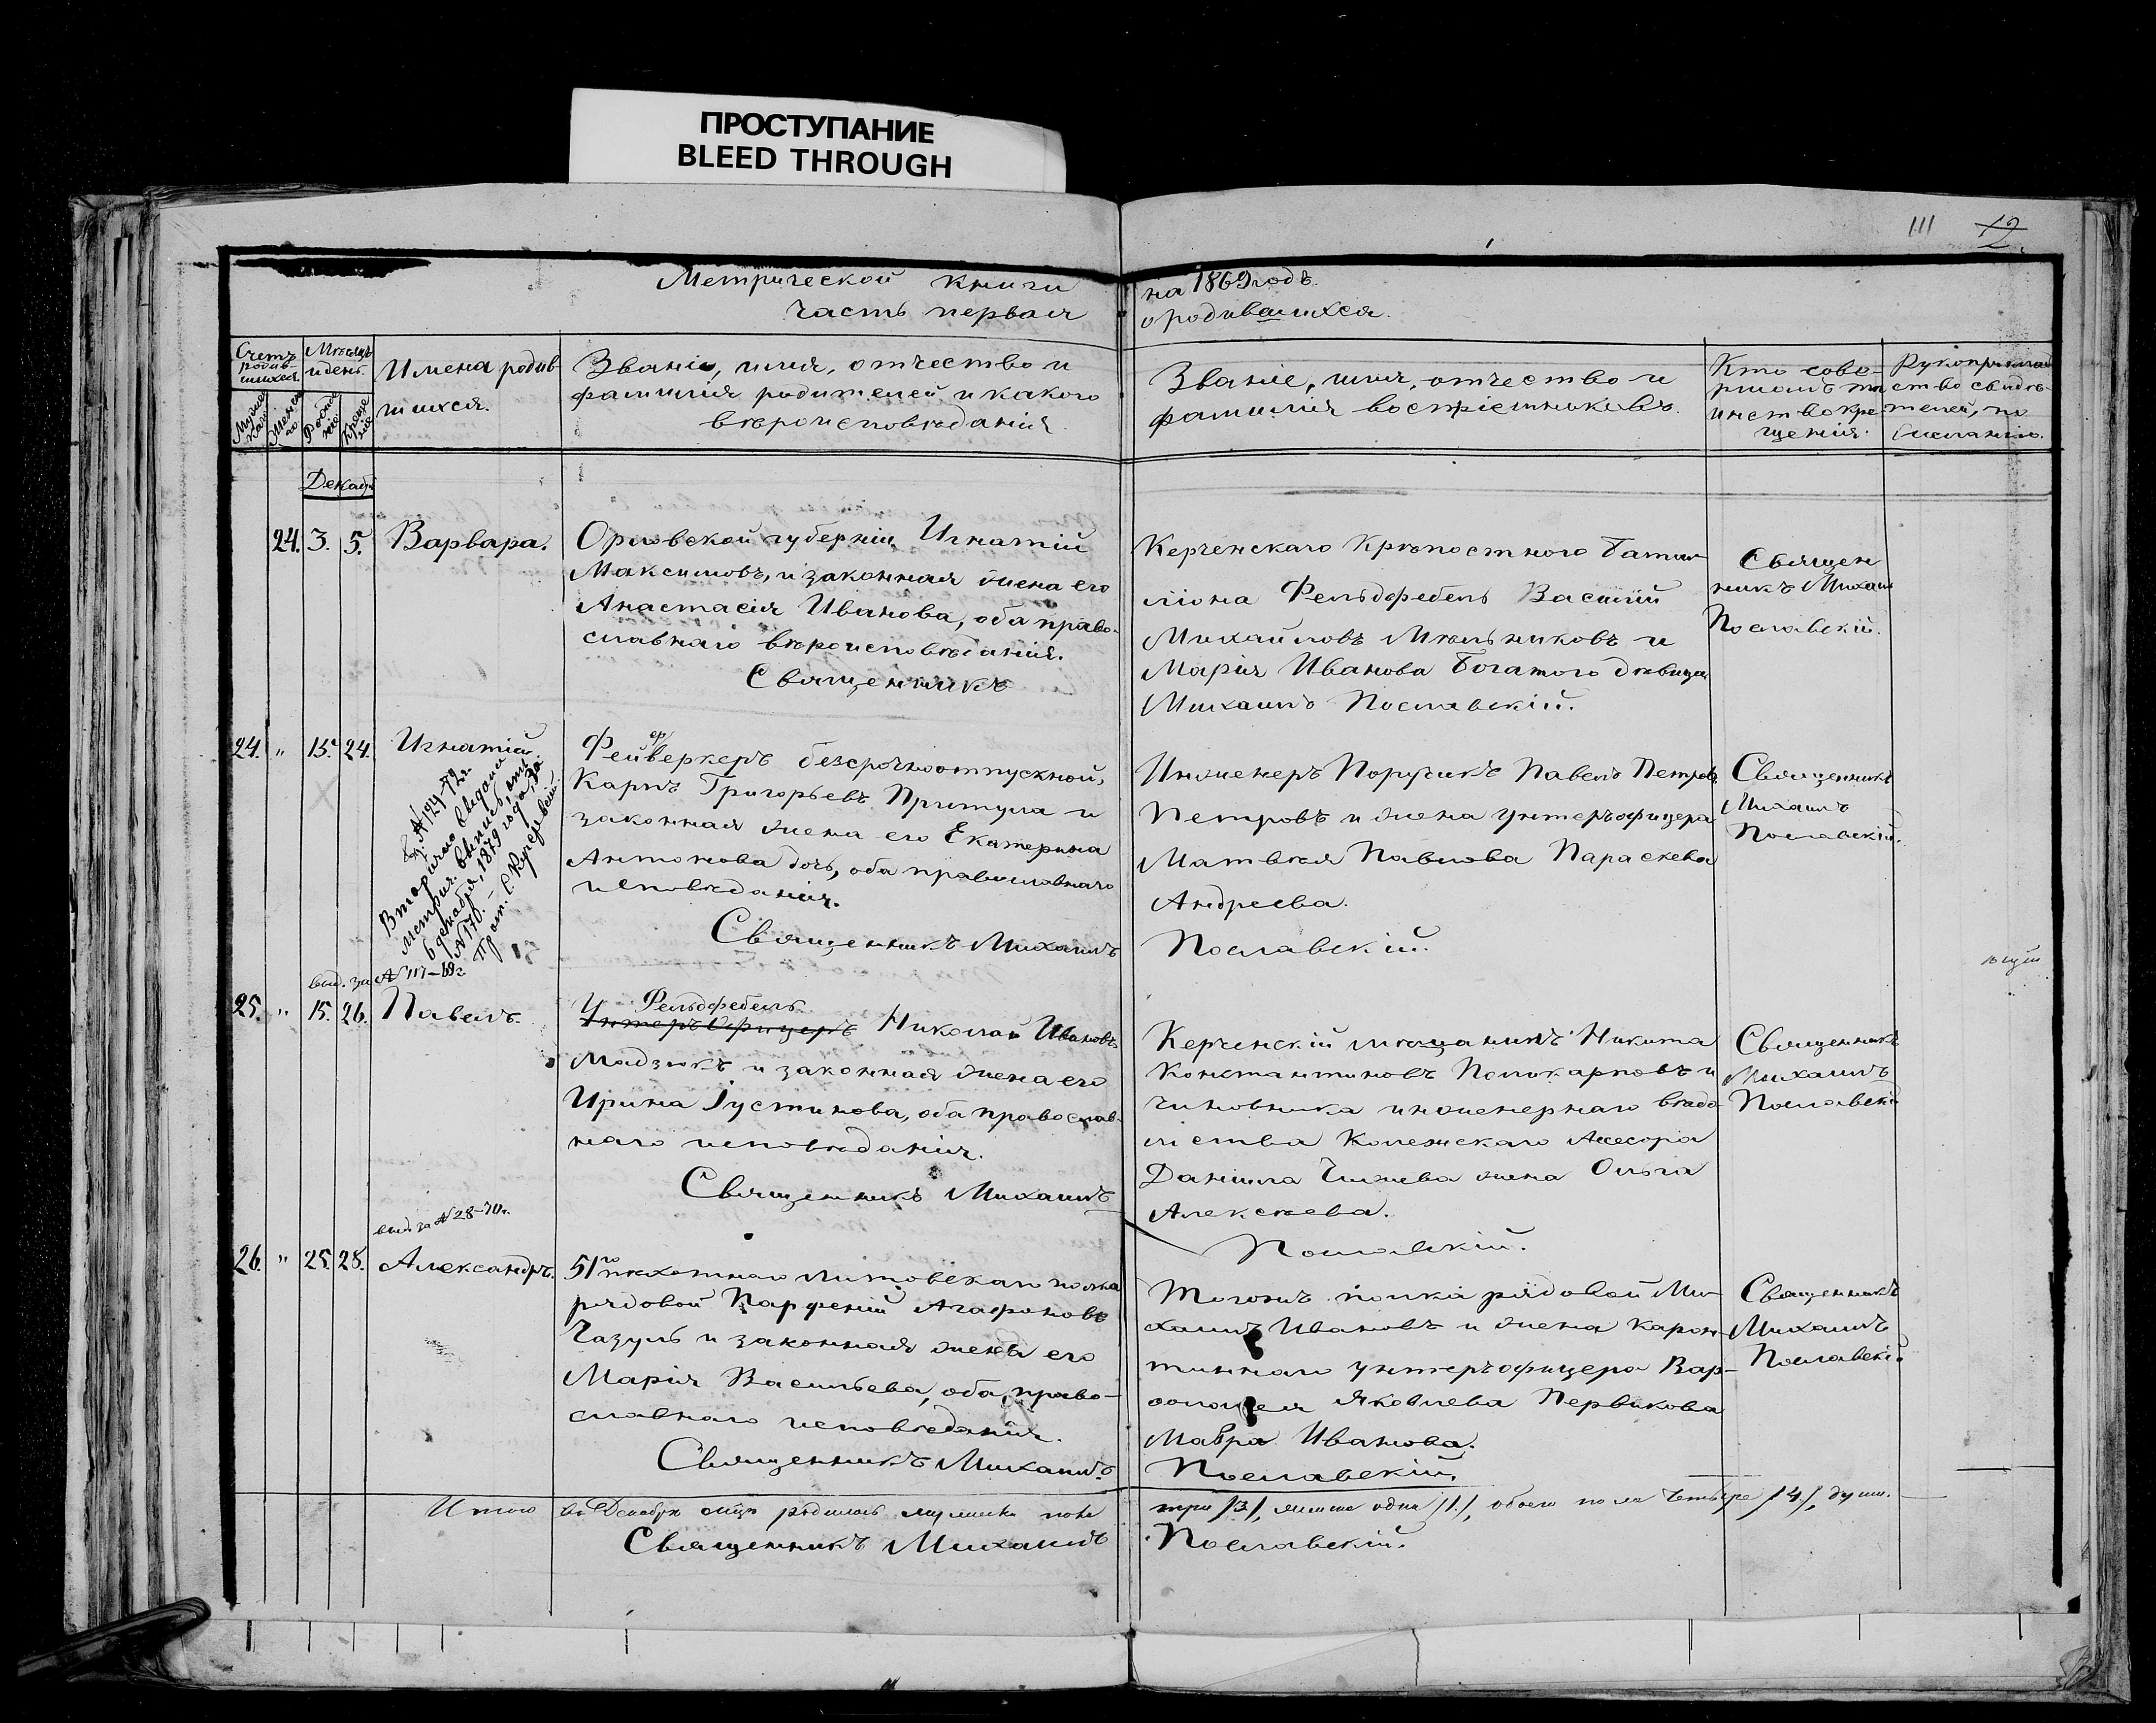 ПРОСТУПАНИЕ
BLEED THROUGH
111 12.
Метрической книги на 1869 годъ.
часть первая о родившихся.
Счетъ родив-шихся.
Мужеска
Женска
Мѣсяцъ и день.
Рожденія
Крещенія
Имена родив-
шихся.
Званіе, имя, отчество и
фамилія родителей и какого
вѣроисповѣданія.
Званіе, имя, отчество и
фамилія воспріемниковъ.
Кто совер-
шалъ та
инство кре
щенія.
Рукоприклад
ство свидѣ-
телей, по
желанію.
Декабрь
24. 3. 5. Варвара.
Орловской губерніи, Игнатій
Максимовъ, и законная жена его
Анастасія Иванова, оба право-
славнаго вѣроисповѣданія.
Священникъ
Керченскаго Крѣпостного Батал-
ліона Фельдфебель Василій
Михайловъ Мѣльниковъ и
Марія Иванова Богатого дѣвица
Михаилъ Пославскій.
Священ
никъ Михаил
Пославскій.
24. " 15. 24. Игнатій
№ 124-72 г.
Вторично выдана
метрич. выпись, отъ
6 декабря, 1879 года, за
№ 170.
Фейерверкеръ безсрочноотпускной,
Карпъ Григорьевъ Притула и
законная жена его Екатерина
Антонова дочь, оба православнаго
исповѣданія.
Священникъ Михаилъ
Инженеръ Поручикъ Павелъ Петров
Петровъ и жена унтеръ офицера
Матвѣя Павлова Параскева
Андреева.
Пославскій.
Священникъ
Михаилъ
Пославскій.
выд. за № 117-69 г
25. " 15. 26. Павелъ.
Фельдфебель
Унтеръ Офицеръ Николай Ивановъ
Мадзюкъ и законная жена его
Ирина Іустинова, оба православ-
наго исповѣданія.
Священникъ Михаилъ
Керченскій мѣщанинъ Никита
Константиновъ Поликарповъ и
чиновника инженернаго вѣдо
мства Колежскаго Асесора
Даниила Чижева жена Ольга
Алексѣева.
Пославскій.
Священникъ
Михаилъ
Пославскій
выд. за № 28-70 г.
26. " 25. 28. Александръ.
51го пѣхотнаго литовскаго полка
рядовой Парфеній Агафоновъ
Чазуль и законная жена его
Марія Васильева, оба право-
славнаго исповѣданія.
Священникъ Михаилъ
Тогожъ полка рядовой Ми-
хаилъ Ивановъ и жена Каран-
тиннаго унтеръ офицера Вар-
ѳоломея Яковлева Первикова
Мавра Иванова.
Пославскій.
Священникъ
Михаилъ
Пославскій
Итого въ Декабрѣ мцѣ родилось мужеска пола три /3/, женска одна /1/, обоего пола четыре /4/, души.
Священникъ Михаилъ Пославскій.